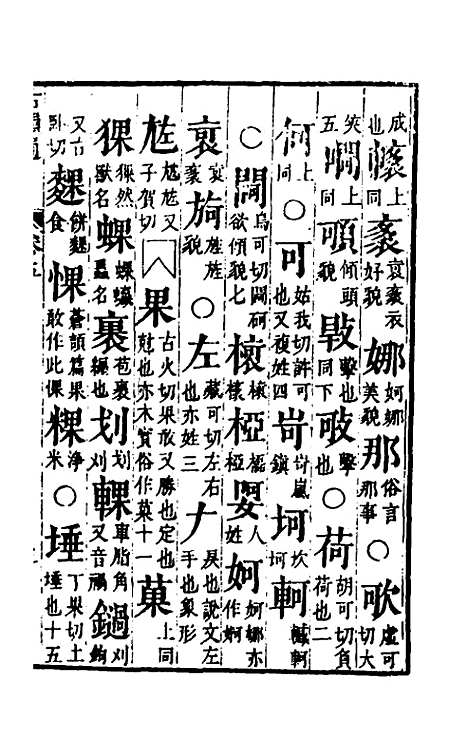 成也 上同 袲 袲衣好貌 娜 婀娜美貌 那 俗言那事 ○ 㰤 虛可切大
笑五 上同 傾頭貌 擊也同下 擊也 ○ 荷 胡可切負荷也二
何 上同 ○ 可 姑我切許可也又複姓四 岢 岢嵐鎮 坷 坎坷 軻 轗軻
○ 閜 烏可切閜砢欲傾貌七 椏 椏 娿 人姓 妸 妸娜亦作婀
旖 貌 ○ 左 臧可切左右也亦姓三 𠂇 戾也說文左手也象形
又子賀切 果 古火切果敢又勝也定也尅也亦木實俗作菓十一 菓 上同
猓 猓然獸名 蜾 蜾蠃蟲名 裹 苞裹纏也 划 划刈 輠 車脂角又音禍 鐹 刈鉤
又古臥切 䴹 餅䴹食 惈 蒼頡篇果敢作此惈 粿 淨米 ○ 埵 丁果切土埵也十五